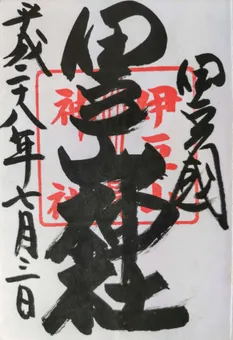 伊豆国
伊豆山神社
平成二十八年七月三日
伊豆山
神社